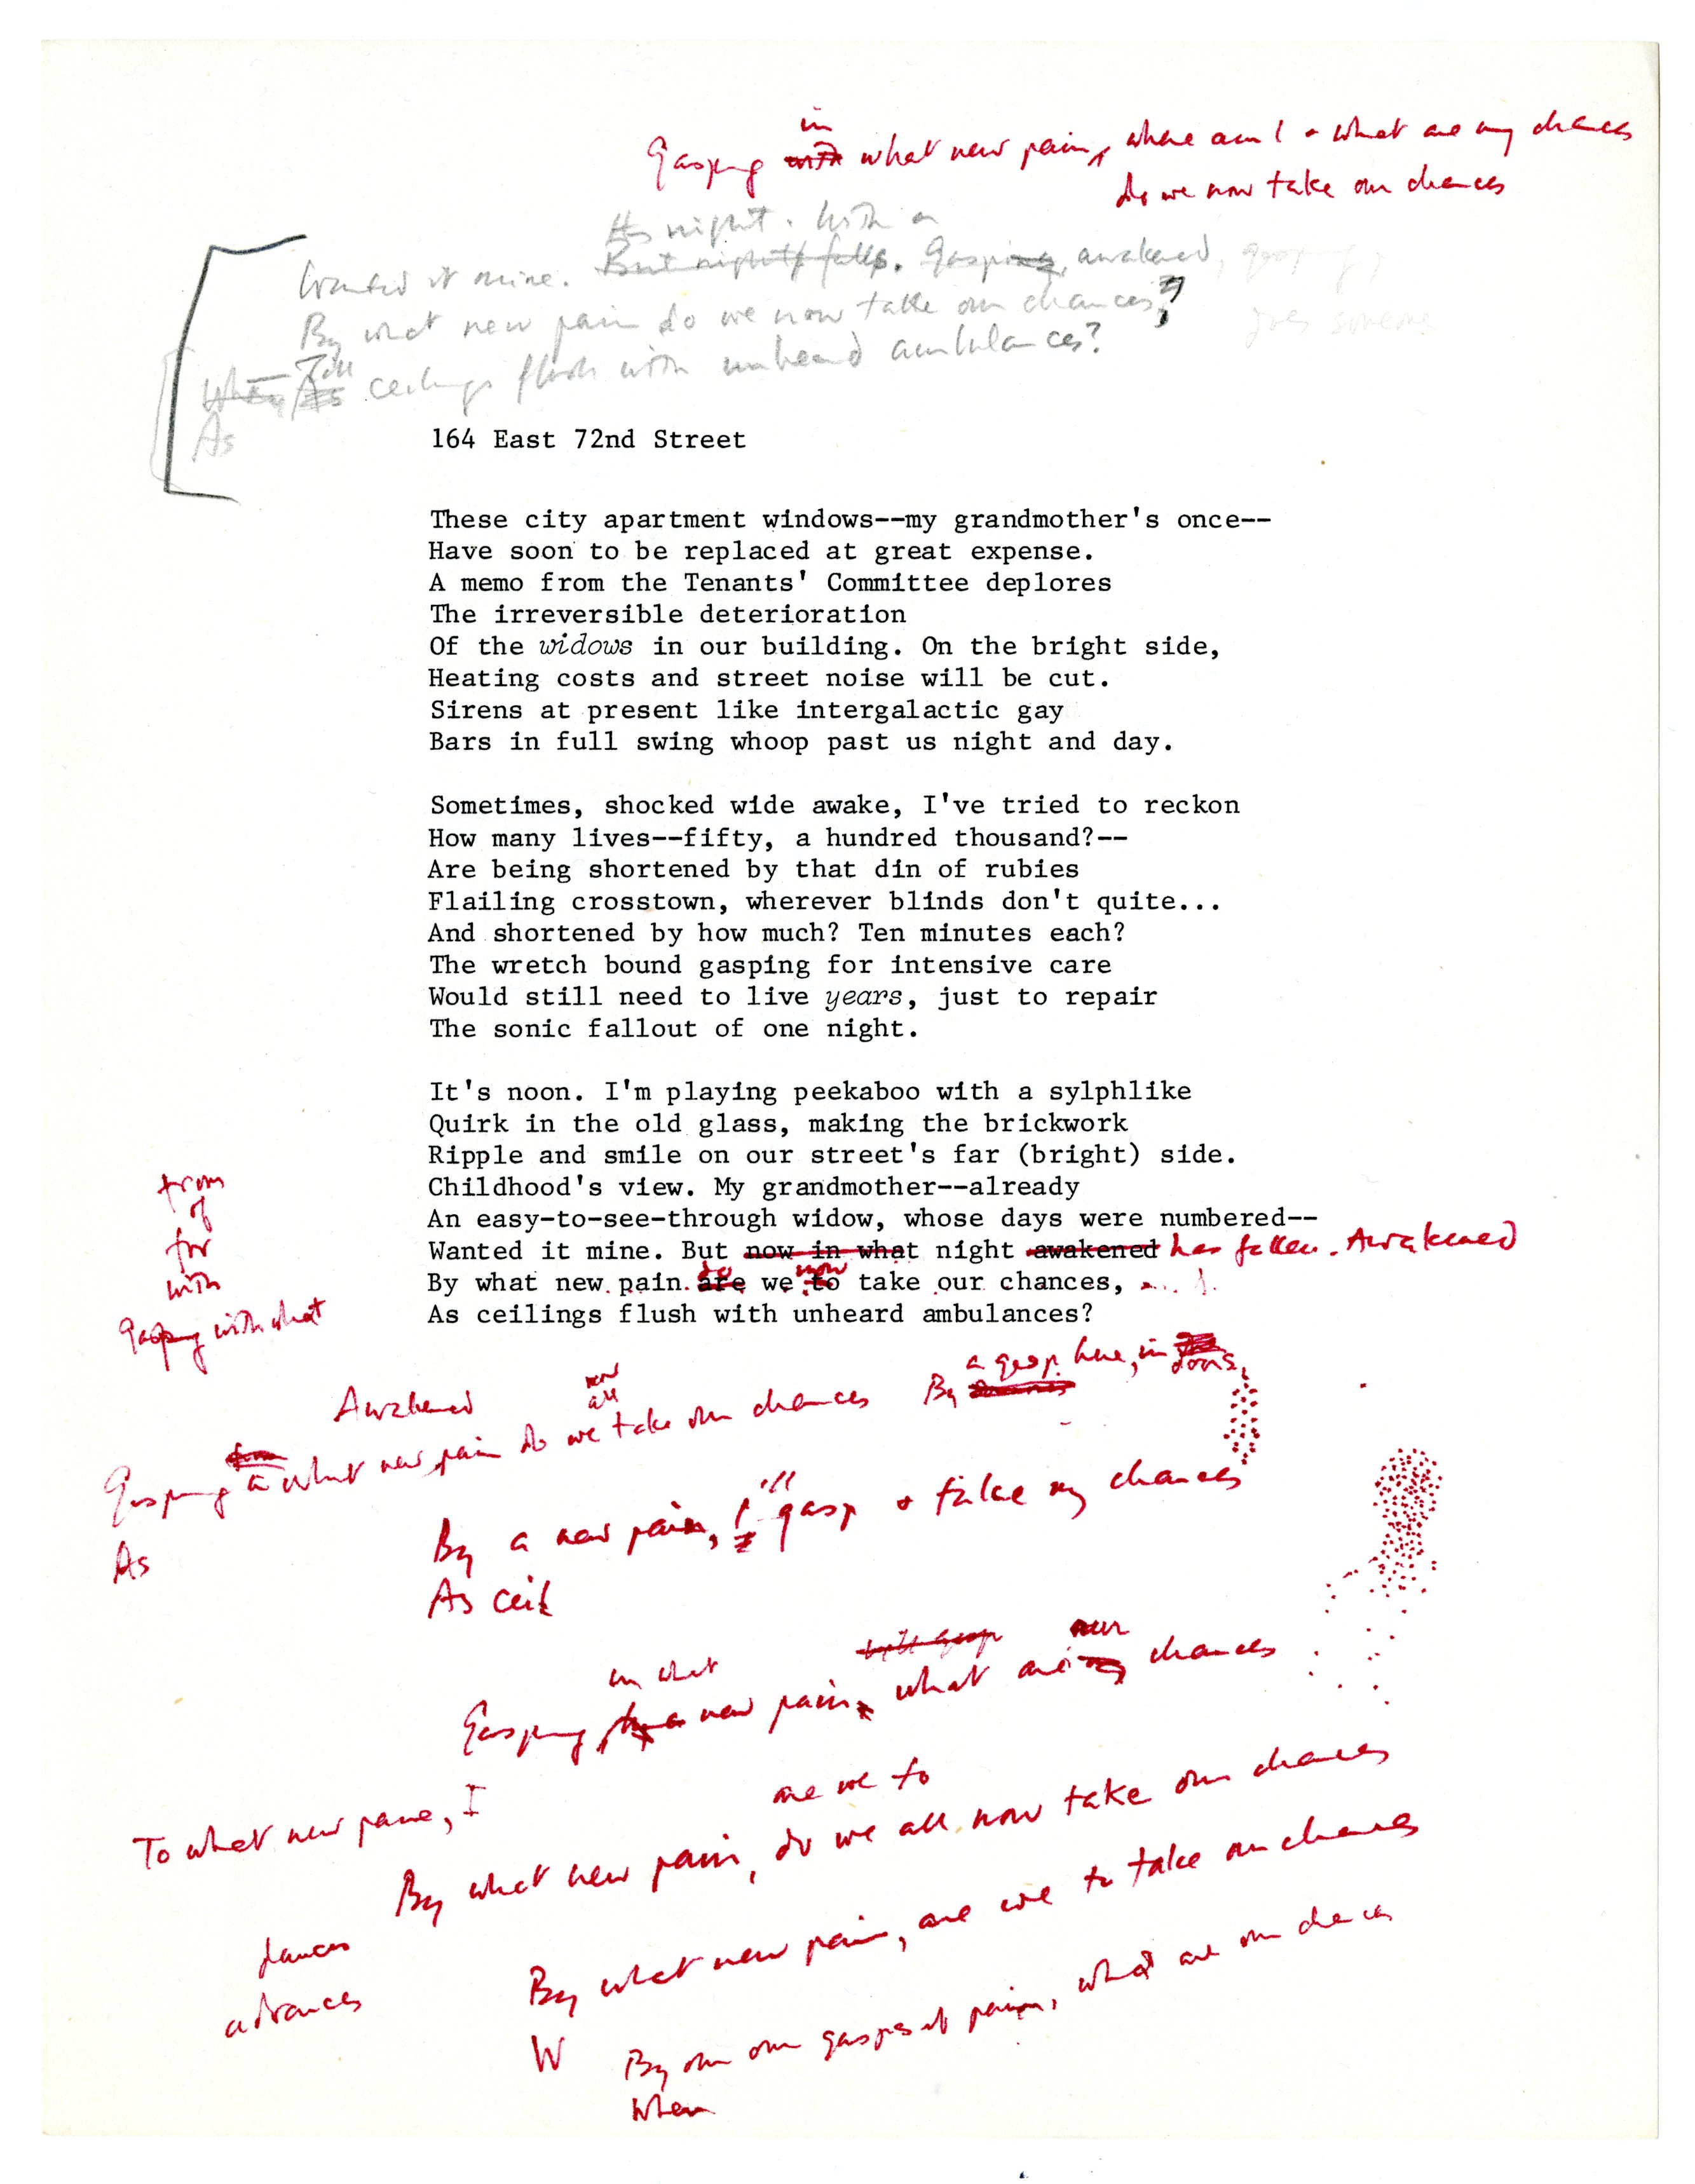 in
Gasping with what new pain, where am I + what are my chances
do we now take our chances
Its night. With a
Wanted it mine. But night falls. Gasping, awakened,
By what new pain do we now take our chances?
When As Till ceilings flush with unheard ambulances?
As
164 East 72nd Street
These city apartment windows--my grandmother's once--
Have soon to be replaced at great expense.
A memo from the Tenants' Committee deplores
The irreversible deterioration
Of the widows in our building. On the bright side,
Heating costs and street noise will be cut.
Sirens at present like intergalactic gay
Bars in full swing whoop past us night and day.
Sometimes, shocked wide awake, I've tried to reckon
How many lives--fifty, a hundred thousand?--
Are being shortened by that din of rubies
Flailing crosstown, wherever blinds don't quite...
And shortened by how much? Ten minutes each?
The wretch bound gasping for intensive care
Would still need to live years, just to repair
The sonic fallout of one night.
It's noon. I'm playing peekaboo with a sylphlike
Quirk in the old glass, making the brickwork
Ripple and smile on our street's far (bright) side.
from
Childhood's view. My grandmother--already
of
An easy-to-see-through widow, whose days were numbered--
for
Wanted it mine. But now in what night awakened has fallen. Awakened
with
do now
By what new pain are we to take our chances,
Gasping with what
As ceilings flush with unheard ambulances?
a gasp here, in
Awakened
now
all
By
Gasping in what new pain do we take our chances
'll
By a new pain, I gasp + take my chances
As
As ceil
in what
our
Gasping by a new pain, what are my chances
are we to
To what new pane, I
By what new pain, do we all now take our chances
By what new pain, are we to take our chances
dances
advances
W
By our own gasps of pain, what are our chances
When